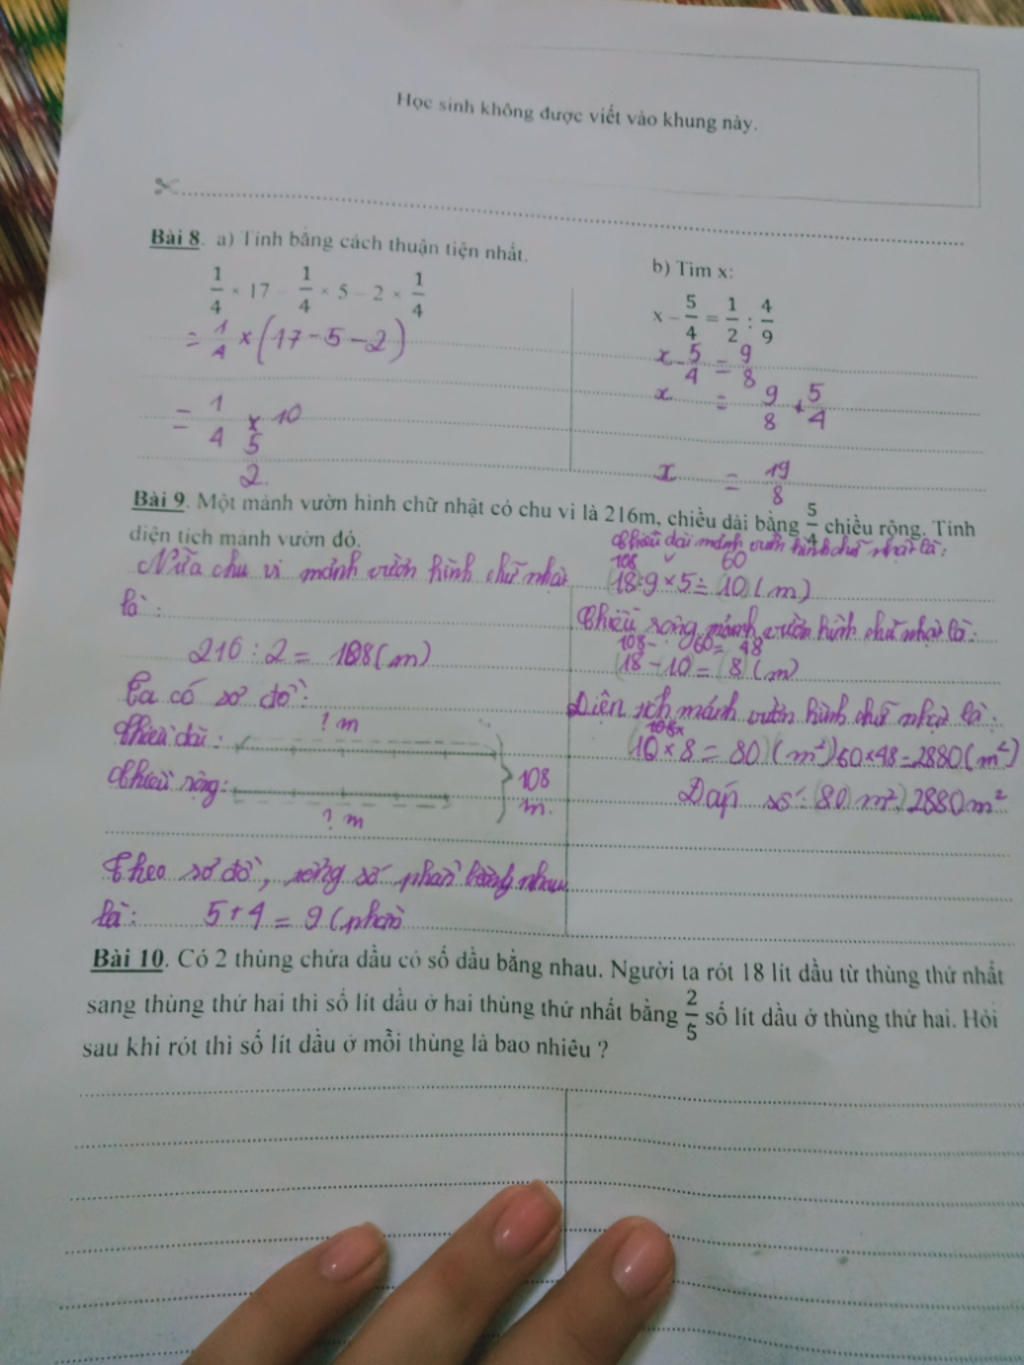 Học sinh không được viết vào khung này.
Bài 8. a) Tính bằng cách thuận tiện nhất.
1/4 × 17 - 1/4 × 5 - 2 × 1/4
= 1/4 × (17 - 5 - 2)
= 1/4 × 10
5
2
b) Tìm x:
x - 5/4 = 1/2 : 4/9
x - 5/4 = 9/8
x = 9/8 + 5/4
x = 19/8
Bài 9. Một mảnh vườn hình chữ nhật có chu vi là 216m, chiều dài bằng 5/4 chiều rộng. Tính
diện tích mảnh vườn đó.
Nửa chu vi mảnh vườn hình chữ nhật
là:
216 : 2 = 108 (m)
Ta có sơ đồ:
? m
Chiều dài:
Chiều rộng:
108
m.
? m
Theo sơ đồ, tổng số phần bằng nhau
là: 5 + 4 = 9 (phần
Chiều dài mảnh vườn hình chữ nhật là:
108 60
(18 : 9 × 5 = 10 (m)
Chiều rộng mảnh vườn hình chữ nhật là:
108 - 60 = 48
(18 - 10 = 8 (m)
Diện tích mảnh vườn hình chữ nhật là:
(10 × 8 = 80) (m²) 60 × 48 = 2880 (m²)
Đáp số: (80 m²) 2880 m²
Bài 10. Có 2 thùng chứa dầu có số dầu bằng nhau. Người ta rót 18 lít dầu từ thùng thứ nhất
sang thùng thứ hai thì số lít dầu ở hai thùng thứ nhất bằng 2/5 số lít dầu ở thùng thứ hai. Hỏi
sau khi rót thì số lít dầu ở mỗi thùng là bao nhiêu ?